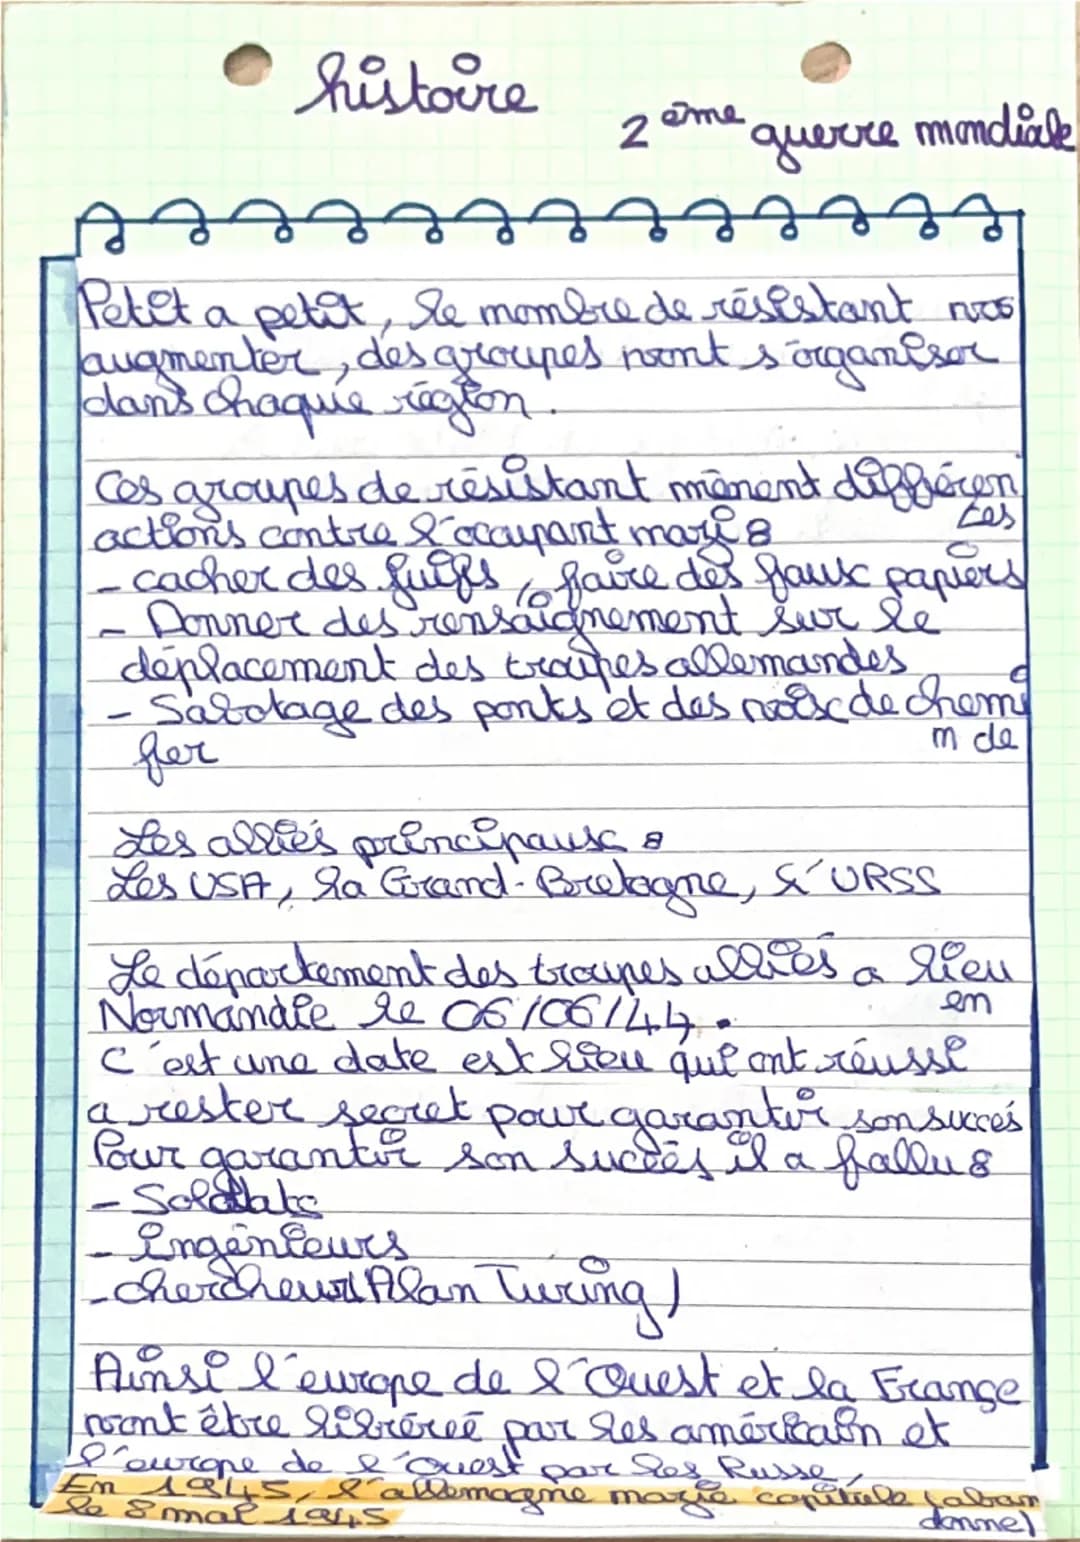 histoire
2ème guerre mondiale
Petit a petit, le nombre de résistant vas
augmenter, des groupes vont s'organiser
dans chaque région.
Ces groupes de résistant mènent différen
tes
actions contre l'occupant nazi :
- cacher des juifs, faire des faux papiers
- Donner des rensaignement sur le
déplacement des troupes allemandes
- Sabotage des ponts et des voix de chemi
n de
fer
Les alliés principaux :
Les USA, la Grand-Bretagne, L'URSS
Le département des troupes alliés a lieu
en
Normandie le 06/06/44.
C'est une date est lieu qui ont réussi
a rester secret pour garantir son succés
Pour garantir son succès il a fallu :
- Soldats
- Ingénieurs
- chercheur(Alan Turing)
Ainsi l'europe de l'Ouest et la France
vont être libéreé par les américain et
l'europe de l'Ouest par les Russe,
En 1945, l'allemagne nazie capitule (aban
donne)
le 8 mai 1945